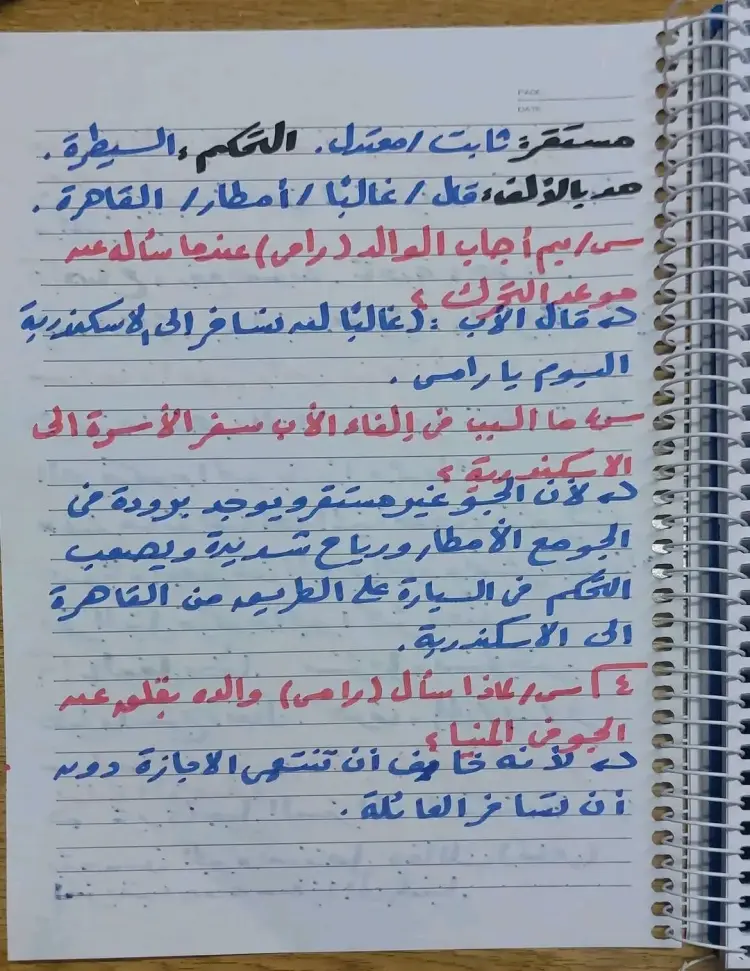 PAGE
DATE
مستقرة: ثابت / معتدل. التحكم: السيطرة.
مد بالألف: قال / غالبًا / أمطار / القاهرة.
س/ بم أجاب الوالد (رامي) عندما سأله عن
موعد التحرك ؟
حـ قال الأب : (غالبًا لن نسافر إلى الاسكندرية
اليوم يا رامي.
س/ ما السبب في إلغاء الأب سفر الأسرة الى
الاسكندرية ؟
حـ لأن الجو غير مستقر ويوجد برودة في
الجو مع الأمطار ورياح شديدة ويصعب
التحكم في السيارة على الطريق من القاهرة
الى الاسكندرية.
٤ س/ لماذا سأل (رامي) والده بقلق عن
الجو في المنيا ؟
حـ لأنه خايف أن تنتهي الاجازة دون
أن تسافر العائلة.